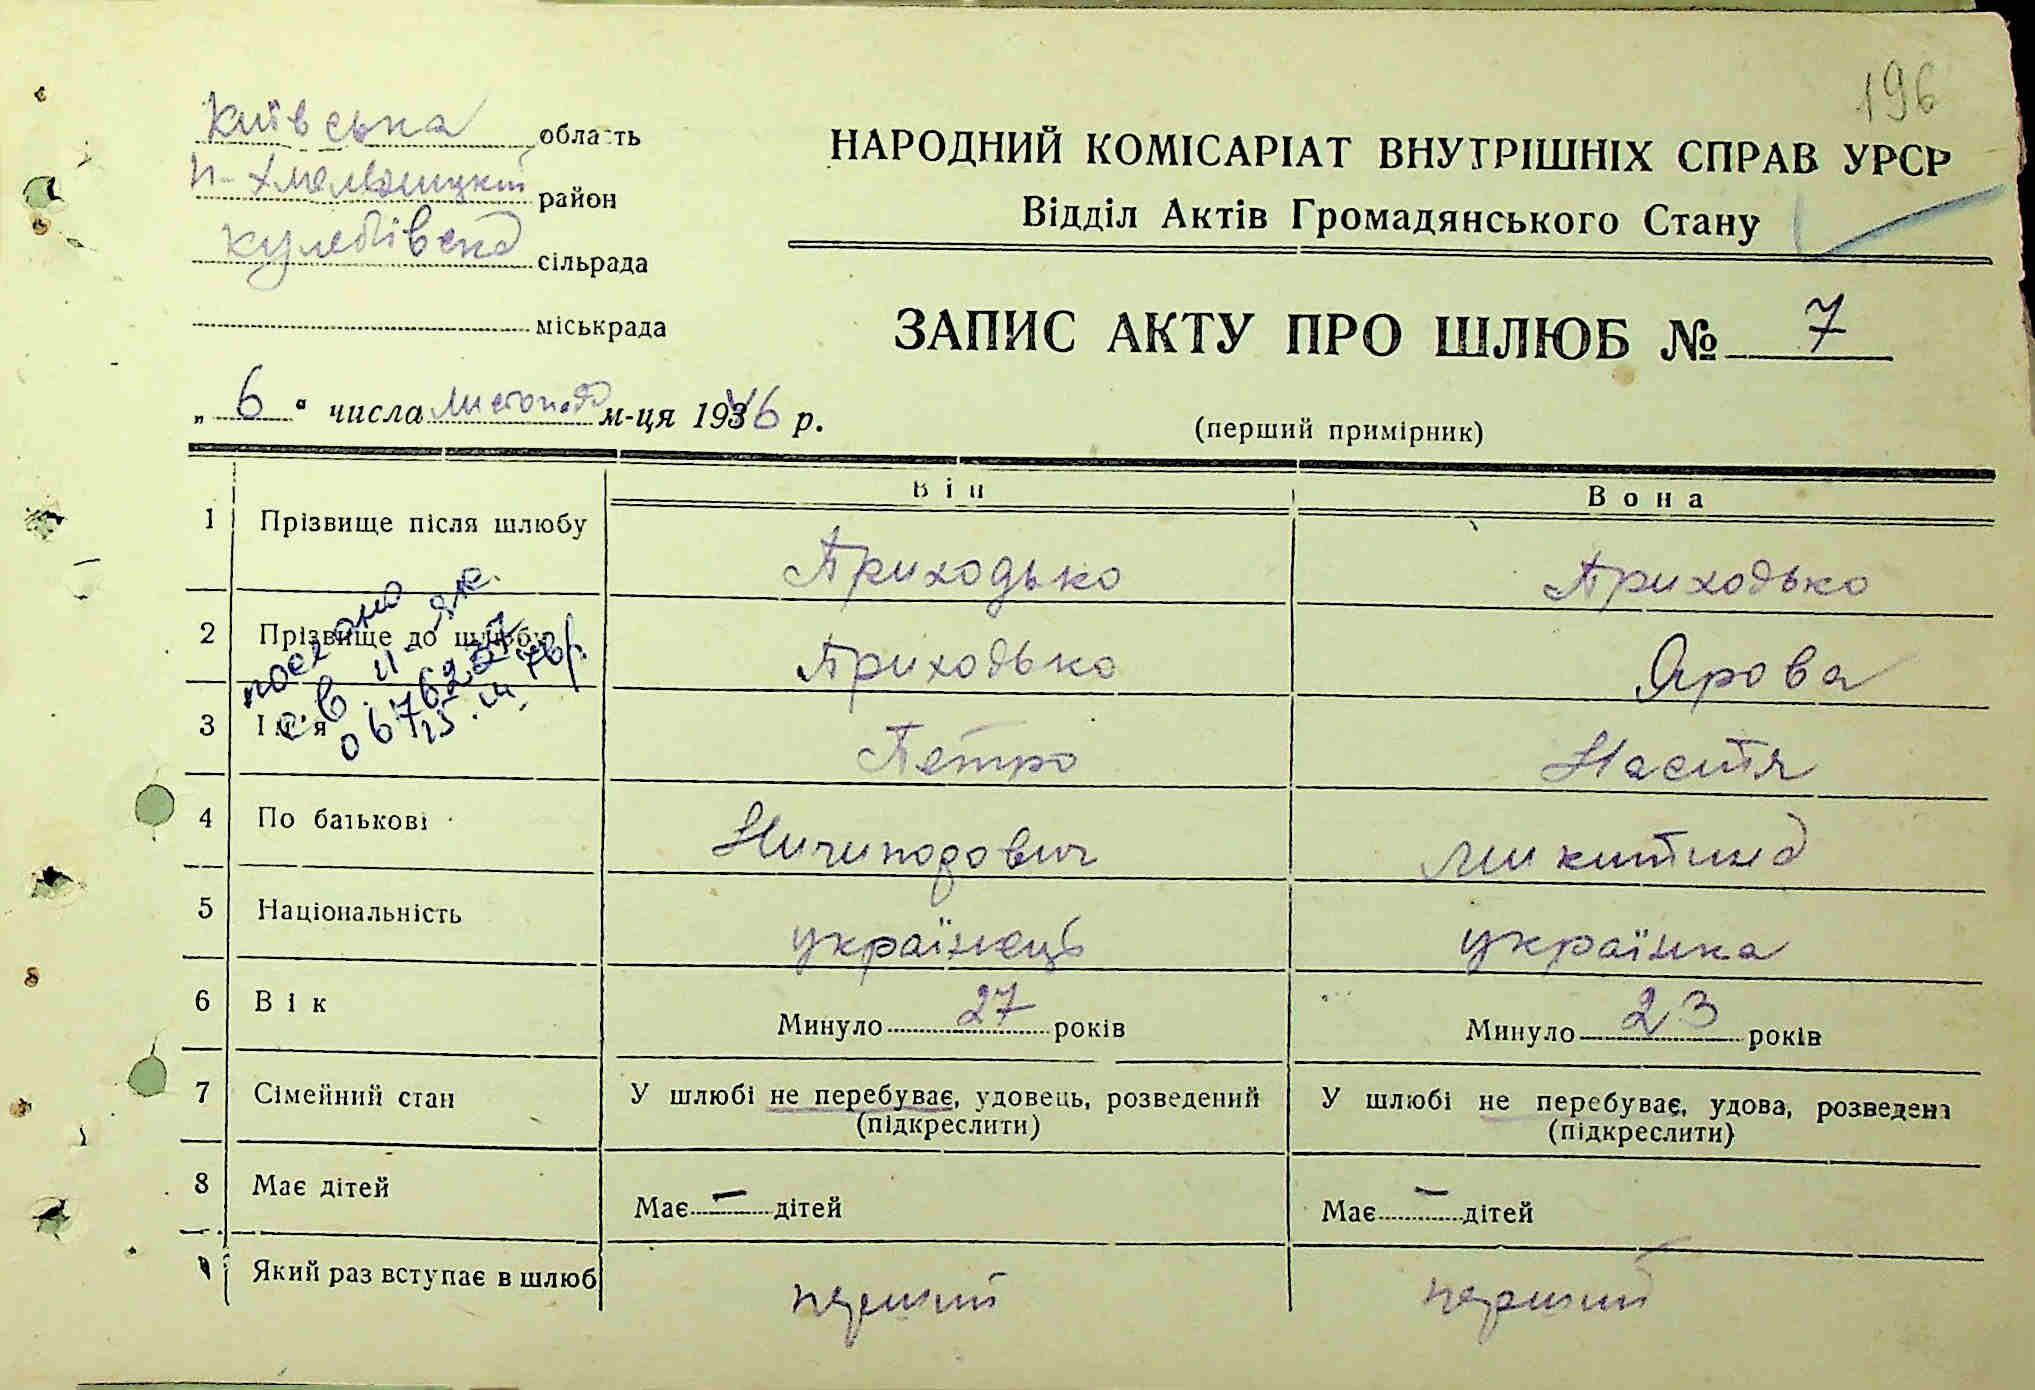 196
Київська область
П-Хмельницький район
Кулебівська сільрада
міськрада
НАРОДНИЙ КОМІСАРІАТ ВНУТРІШНІХ СПРАВ УРСР
Відділ Актів Громадянського Стану
ЗАПИС АКТУ ПРО ШЛЮБ № 7
„ 6 " числа листопада м-ця 1946 р.
(перший примірник)
Він Вона
1 Прізвище після шлюбу Приходько Приходько
2 Прізвище до шлюбу Приходько Ярова
3 Ім'я Петро Настя
4 По батькові Ничипорович Микитина
5 Національність українець українка
6 Вік Минуло 27 років Минуло 23 років
7 Сімейний стан У шлюбі не перебуває, удовець, розведений У шлюбі не перебуває, удова, розведена
(підкреслити) (підкреслити)
8 Має дітей Має — дітей Має — дітей
Який раз вступає в шлюб перший перший